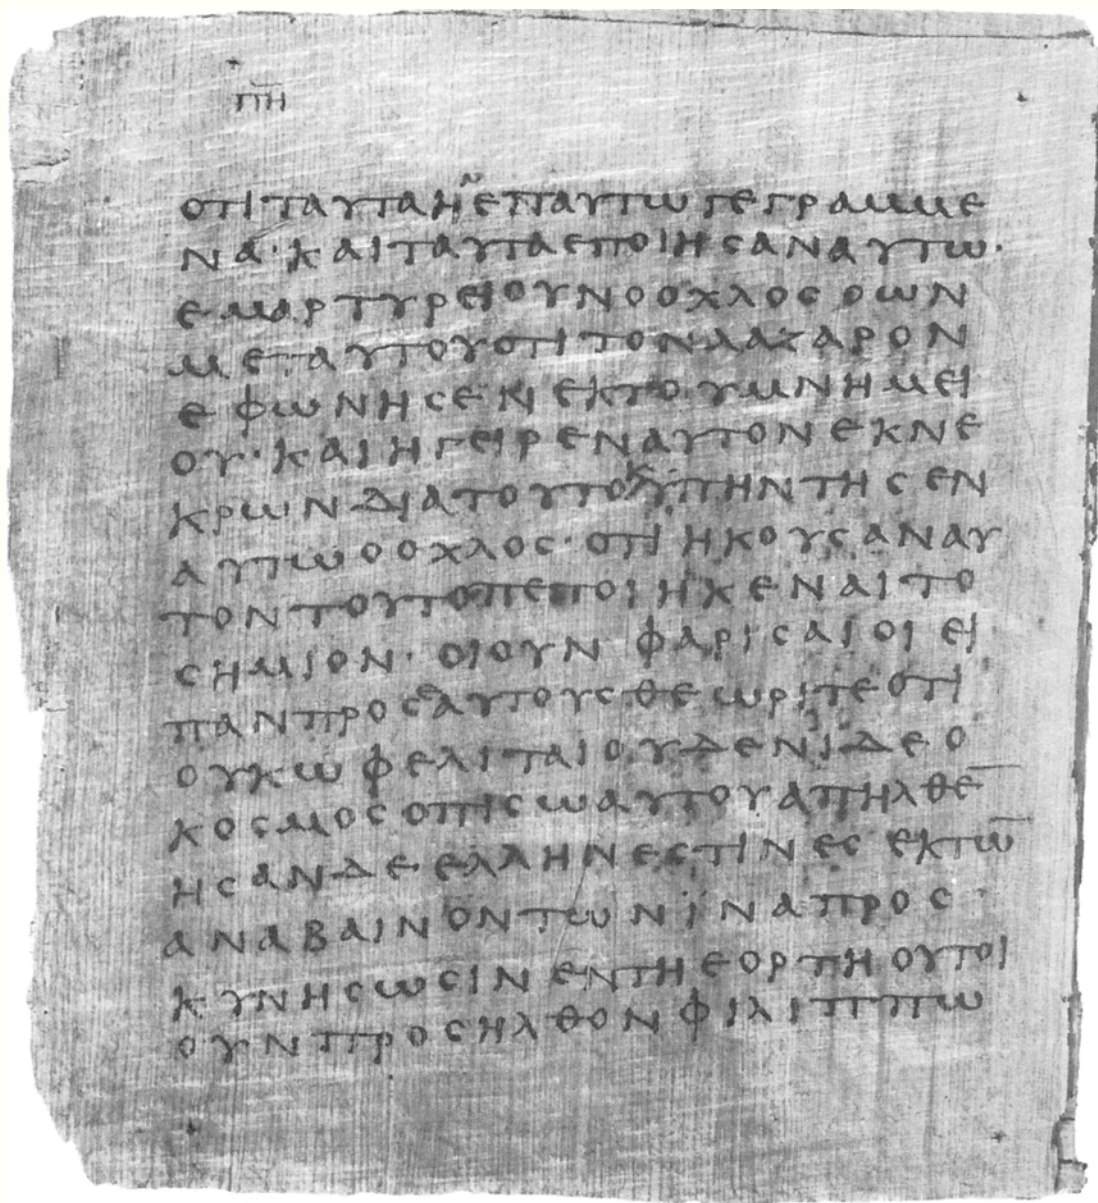 πη
οτι ταυτα ην επ αυτω γεγραμμε
να· και ταυτα εποιησαν αυτω·
εμαρτυρει ουν ο οχλος ο ων
μετ αυτου οτι τον λαζαρον
εφωνησεν εκ του μνημει
ου· και ηγειρεν αυτον εκ νε
κρων δια τουτο κ υπηντησεν
αυτω ο οχλος· οτι ηκουσαν αυ
τον τουτο πεποιηκεναι το
σημιον· οι ουν φαρισαιοι ει
παν προς εαυτους θεωριτε οτι
ουκ ωφελιται ουδεν ϊδε ο
κοσμος οπισω αυτου απηλθε̅
ησαν δε ελληνες τινες εκ τω̅
αναβαινοντων ϊνα προσ
κυνησωσιν εν τη εορτη ουτοι
ουν προσηλθον φιλιππω